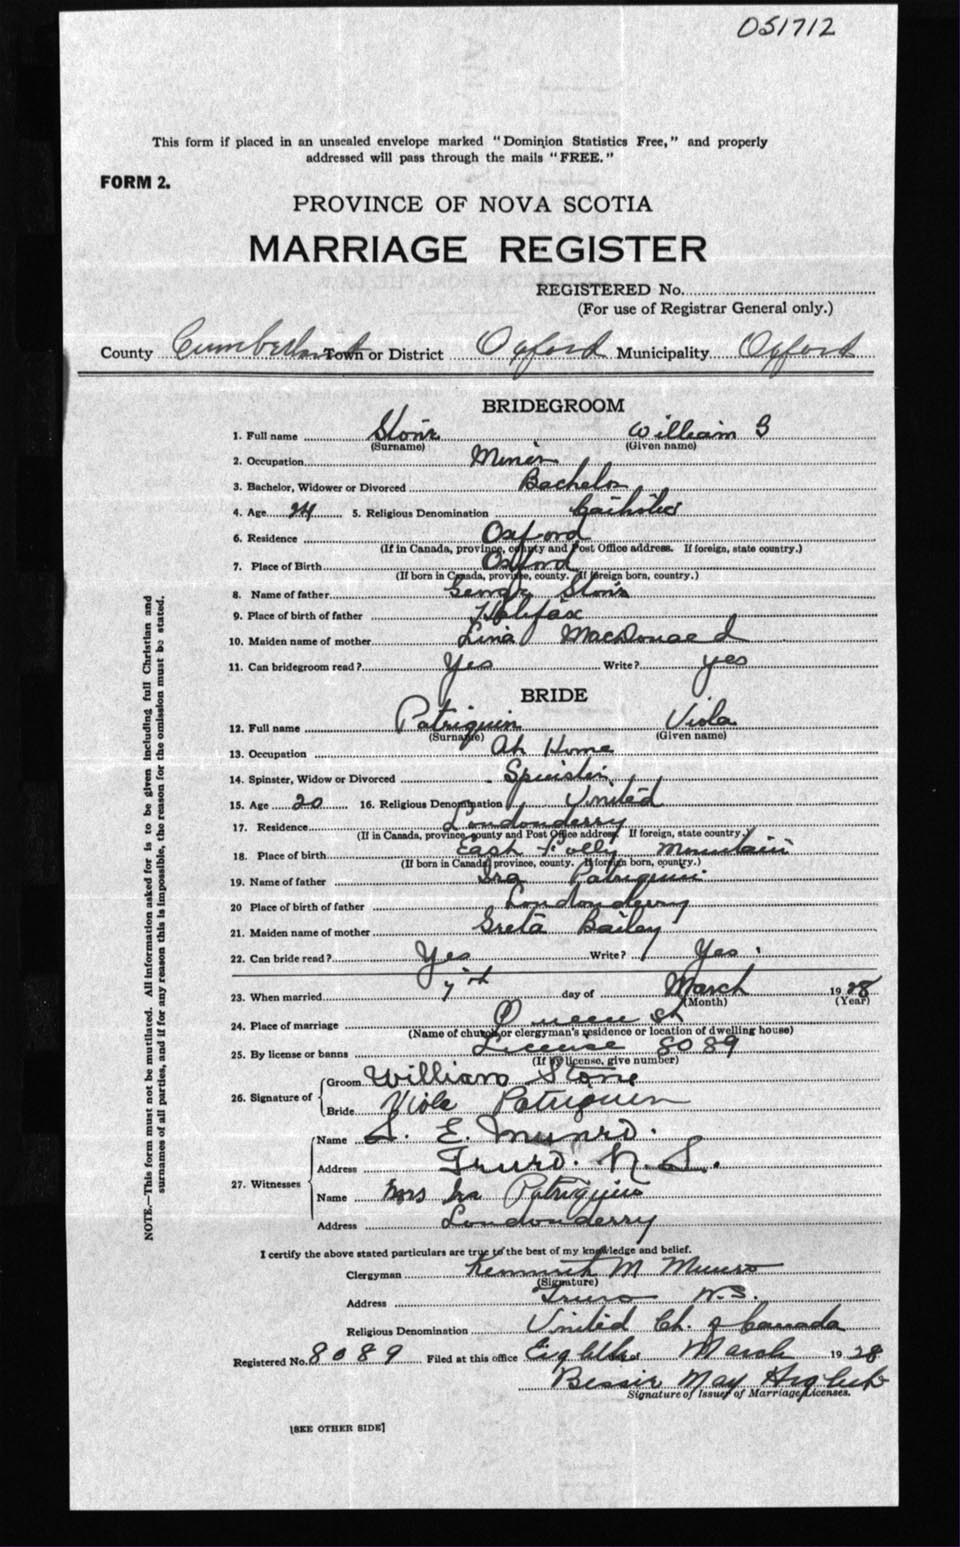 051712
This form if placed in an unsealed envelope marked "Dominion Statistics Free," and properly
addressed will pass through the mails "FREE."
FORM 2.
PROVINCE OF NOVA SCOTIA
MARRIAGE REGISTER
REGISTERED No.
(For use of Registrar General only.)
County Cumberland Town or District Oxford Municipality Oxford
BRIDEGROOM
1. Full name Stone William G
(Surname) (Given name)
2. Occupation Miner
3. Bachelor, Widower or Divorced Bachelor
4. Age 24 5. Religious Denomination Catholic
6. Residence Oxford
(If in Canada, province, county and Post Office address. If foreign, state country.)
7. Place of Birth Oxford
(If born in Canada, province, county. If foreign born, country.)
8. Name of father George Stone
9. Place of birth of father Halifax
10. Maiden name of mother Lina MacDonald
11. Can bridegroom read? Yes Write? yes
BRIDE
12. Full name Patriquin Viola
(Surname) (Given name)
13. Occupation At Home
14. Spinster, Widow or Divorced Spinster
15. Age 20 16. Religious Denomination United
17. Residence Londonderry
(If in Canada, province, county and Post Office address. If foreign, state country.)
18. Place of birth East Folly Mountain
(If born in Canada, province, county. If foreign born, country.)
19. Name of father Ira Patriquin
20 Place of birth of father Londonderry
21. Maiden name of mother Greta Bailey
22. Can bride read? Yes Write? Yes
23. When married 7th day of March 1928
(Month) (Year)
24. Place of marriage Queen St
(Name of church or clergyman's residence or location of dwelling house)
25. By license or banns License 8089
(If by license, give number)
26. Signature of Groom William Stone
Bride Viola Patriquin
27. Witnesses Name S. E. Munro.
Address Truro. N. S.
Name Mrs Ira Patriquin
Address Londonderry
I certify the above stated particulars are true to the best of my knowledge and belief.
Clergyman Kenneth M Munro
(Signature)
Address Truro N.S.
Religious Denomination United Ch. of Canada
Registered No. 8089 Filed at this office Eighth of March 1928
Bessie May
Signature of Issuer of Marriage Licenses.
[SEE OTHER SIDE]
NOTE.—This form must not be mutilated. All information asked for is to be given including full Christian and
surnames of all parties, and if for any reason this is impossible, the reason for the omission must be stated.